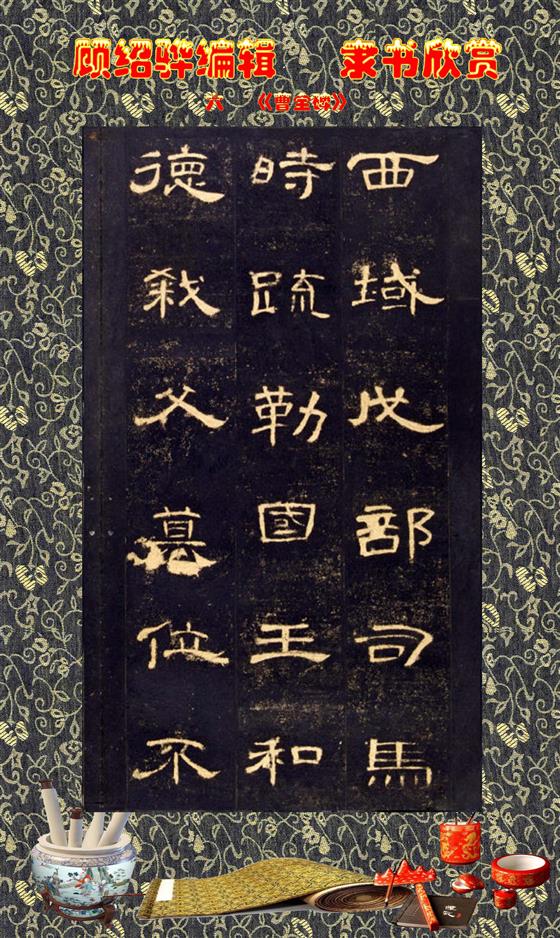 顾绍骅编辑 隶书欣赏
六 《曹全碑》
西域戊部司馬
時疏勒國王和
德弑父篡位不